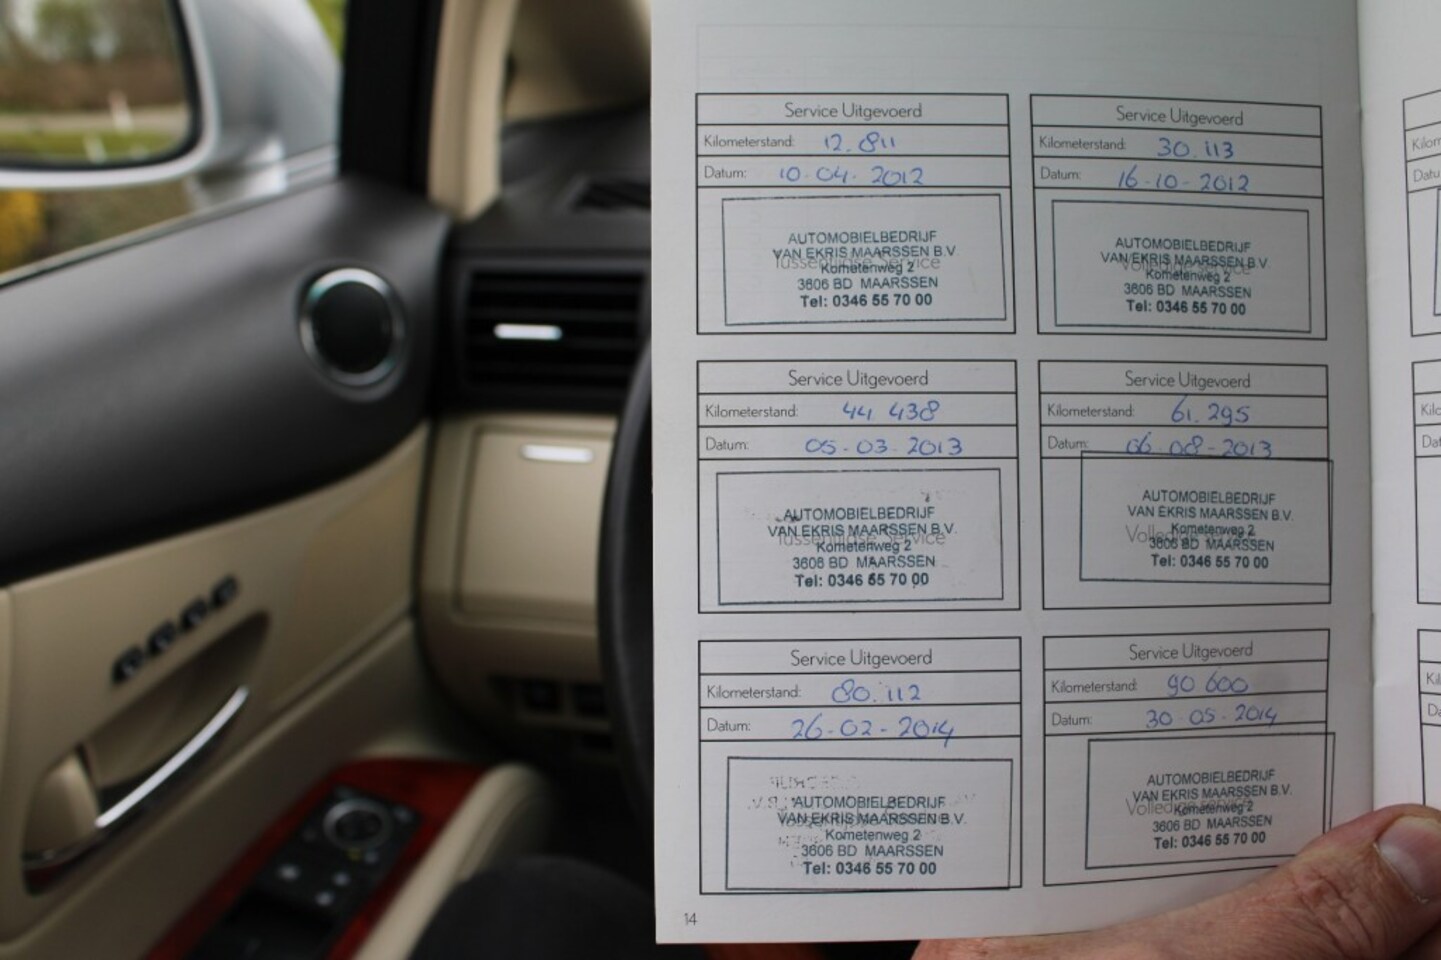 Service Uitgevoerd
Kilometerstand: 12.811
Datum: 10-04-2012
Tussentijdse Service
AUTOMOBIELBEDRIJF
VAN EKRIS MAARSSEN B.V.
Kometenweg 2
3606 BD MAARSSEN
Tel: 0346 55 70 00
Service Uitgevoerd
Kilometerstand: 30.113
Datum: 16-10-2012
Volledige service
AUTOMOBIELBEDRIJF
VAN EKRIS MAARSSEN B.V.
Kometenweg 2
3606 BD MAARSSEN
Tel: 0346 55 70 00
Service Uitgevoerd
Kilometerstand: 44.438
Datum: 05-03-2013
Tussentijdse Service
AUTOMOBIELBEDRIJF
VAN EKRIS MAARSSEN B.V.
Kometenweg 2
3606 BD MAARSSEN
Tel: 0346 55 70 00
Service Uitgevoerd
Kilometerstand: 61.295
Datum: 06-08-2013
Volledige service
AUTOMOBIELBEDRIJF
VAN EKRIS MAARSSEN B.V.
Kometenweg 2
3606 BD MAARSSEN
Tel: 0346 55 70 00
Service Uitgevoerd
Kilometerstand: 80.112
Datum: 26-02-2014
AUTOMOBIELBEDRIJF
VAN EKRIS MAARSSEN B.V.
Kometenweg 2
3606 BD MAARSSEN
Tel: 0346 55 70 00
Service Uitgevoerd
Kilometerstand: 90 600
Datum: 30-05-2014
Volledige service
AUTOMOBIELBEDRIJF
VAN EKRIS MAARSSEN B.V.
Kometenweg 2
3606 BD MAARSSEN
Tel: 0346 55 70 00
14